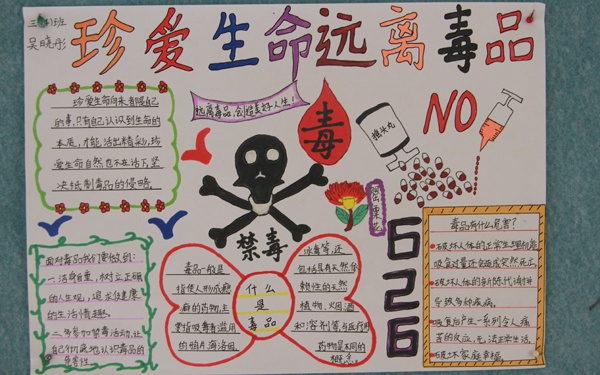 三(4)班
吴晓彤
珍爱生命远离毒品
珍爱生命向来者限自己
的事,只有自己认识到生命的
本质,才能活出精彩,珍
爱生命自然也不在话下,坚
决抵制毒品的侵略.
远离毒品,创造美好人生!
毒
摇头丸
NO
罂粟花
禁毒
626
面对毒品我们要做到:
一 洁身自重,树立正确
的人生观,追求健康
的生活情趣.
二 多参加禁毒活动,让
自己彻底地认识毒品的
危害性
毒品一般是
指使人形成瘾
癖的药物,主
要指吸毒者滥用
的鸦片,海洛因,
什么
是
毒品
冰毒等,还
包括具有天然依
赖性的天然
植物,烟酒
和溶剂等,与医疗用
药物是不同的
概念.
毒品有什么危害?
破坏人体的正常生理机能
吸食过量还会造成突然死亡.
破坏人体的新陈代谢,并
导致多种疾病.
吸食后产生一系列令人痛
苦的反应,无法正常生活.
破坏家庭幸福.